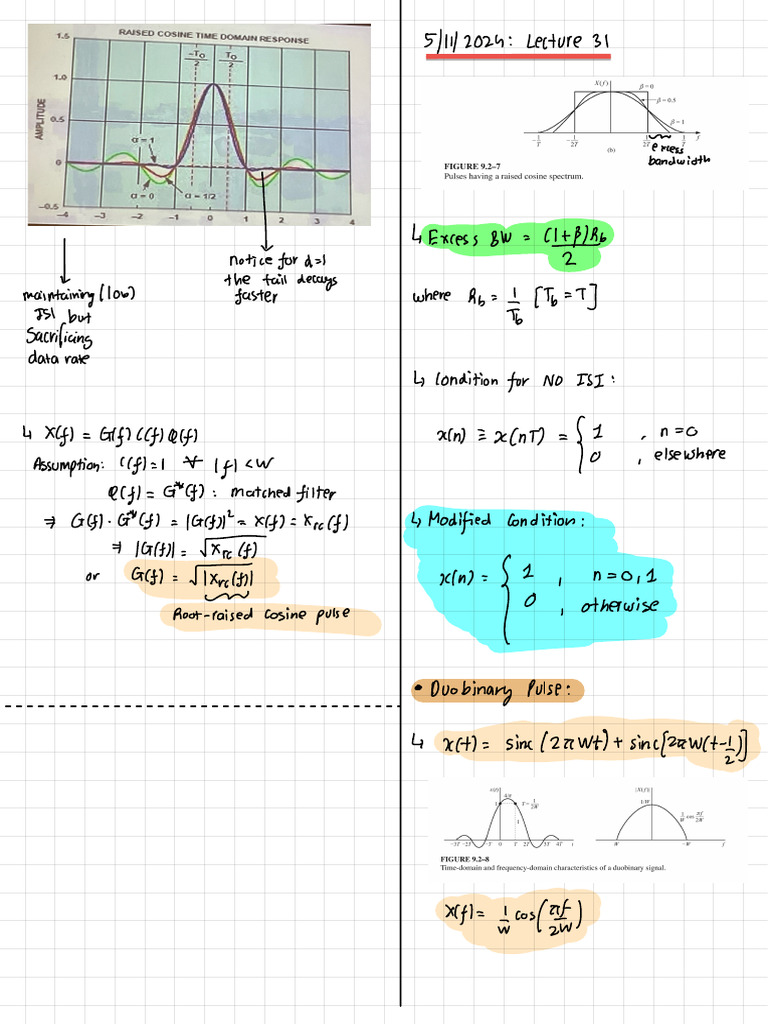 RAISED COSINE TIME DOMAIN RESPONSE
1.5
1.0
0.5
0
-0.5
AMPLITUDE
-T₀/2
T₀/2
α = 1
α = 0
α = 1/2
-4 -3 -2 -1 0 1 2 3 4
maintaining (low)
ISI but
Sacrificing
data rate
notice for α=1
the tail decays
faster
↳ X(f) = G(f) C(f) Q(f)
Assumption: C(f)=1 ∀ |f|<W
Q(f) = G*(f) : matched filter
⇒ G(f)·G*(f) = |G(f)|² = X(f) = X_rc(f)
⇒ |G(f)| = √X_rc(f)
or G(f) = √|X_rc(f)|
Root-raised cosine pulse
5/11/2024: Lecture 31
X(f)
β = 0
β = 0.5
β = 1
-1/T -1/2T 1/2T 1/T f
(b)
excess
bandwidth
FIGURE 9.2–7
Pulses having a raised cosine spectrum.
↳ Excess BW = (1+β)R_b/2
where R_b = 1/T_b [T_b = T]
↳ Condition for NO ISI:
x(n) ≡ x(nT) = { 1 , n=0
0 , elsewhere
↳ Modified Condition:
x(n) = { 1 , n=0,1
0 , otherwise
• Duobinary Pulse:
↳ x(t) = sinc(2πWt) + sinc[2πW(t-1/2)]
x(t)
4/π
1
T = 1/2W
-3T -2T -T 0 T 2T 3T 4T t
|X(f)|
1/W
1/W cos πf/2W
W -W f
FIGURE 9.2–8
Time-domain and frequency-domain characteristics of a duobinary signal.
X(f) = 1/W cos(πf/2W)